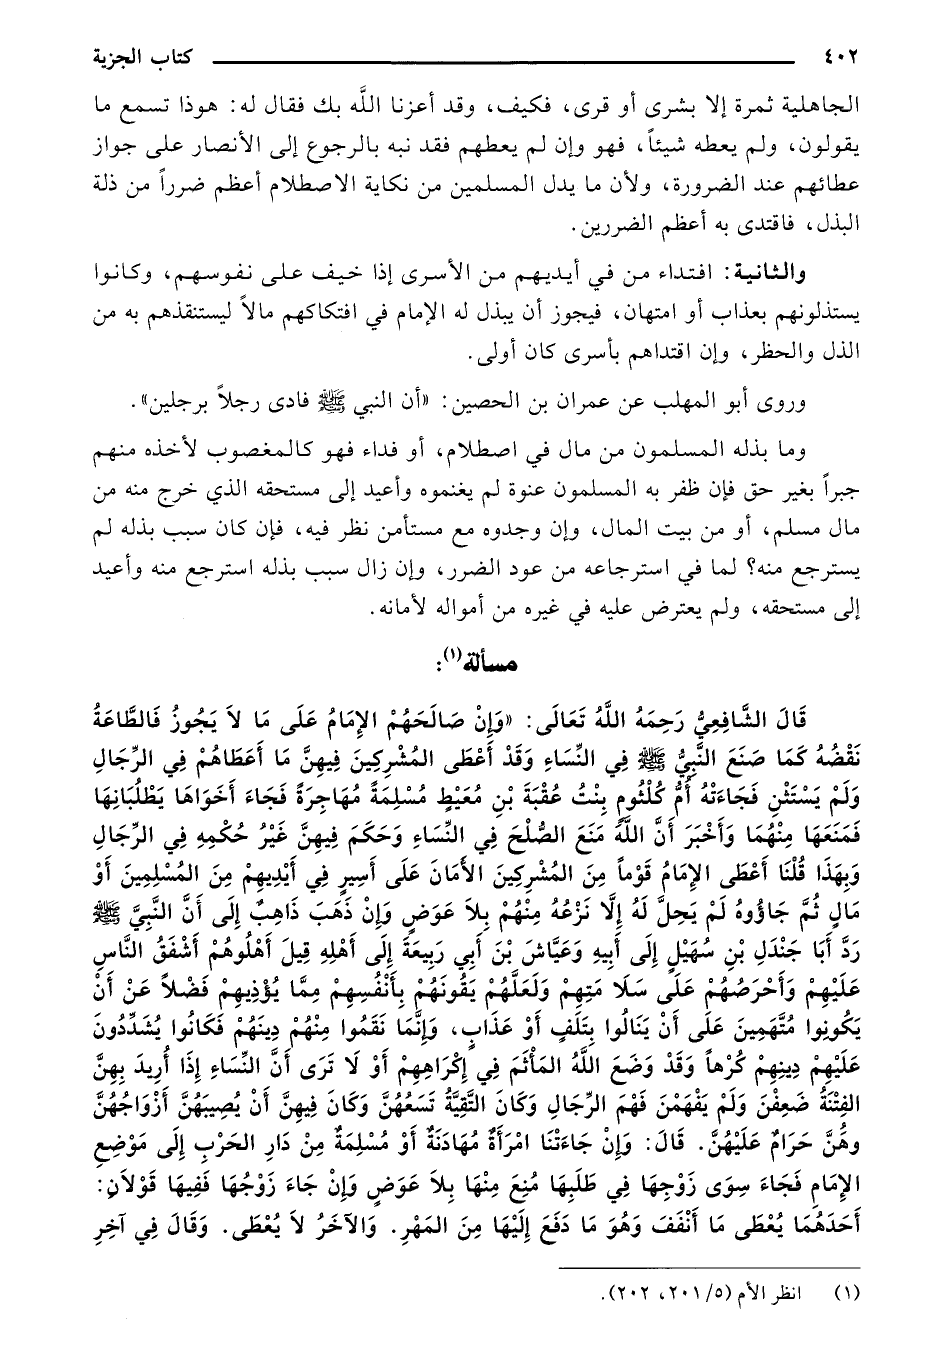 ٤٠٢ كتاب الجزية
الجاهلية ثمرة إلا بشرى أو قرى، فكيف، وقد أعزنا اللَّه بك فقال له: هوذا تسمع ما
يقولون، ولم يعطه شيئاً، فهو وإن لم يعطهم فقد نبه بالرجوع إلى الأنصار على جواز
عطائهم عند الضرورة، ولأن ما يدل المسلمين من نكاية الاصطلام أعظم ضرراً من ذلة
البذل، فاقتدى به أعظم الضررين.
والثانية: افتداء من في أيديهم من الأسرى إذا خيف على نفوسهم، وكانوا
يستذلونهم بعذاب أو امتهان، فيجوز أن يبذل له الإمام في افتكاكهم مالاً ليستنقذهم به من
الذل والحظر، وإن اقتداهم بأسرى كان أولى.
وروى أبو المهلب عن عمران بن الحصين: «أن النبي ﷺ فادى رجلاً برجلين».
وما بذله المسلمون من مال في اصطلام، أو فداء فهو كالمغصوب لأخذه منهم
جبراً بغير حق فإن ظفر به المسلمون عنوة لم يغنموه وأعيد إلى مستحقه الذي خرج منه من
مال مسلم، أو من بيت المال، وإن وجدوه مع مستأمن نظر فيه، فإن كان سبب بذله لم
يسترجع منه؟ لما في استرجاعه من عود الضرر، وإن زال سبب بذله استرجع منه وأعيد
إلى مستحقه، ولم يعترض عليه في غيره من أمواله لأمانه.
مسألة(١):
قَالَ الشَّافِعِيُّ رَحِمَهُ اللَّهُ تَعَالَى: «وَإِنْ صَالَحَهُمْ الإِمَامُ عَلَى مَا لاَ يَجُوزُ فَالطَّاعَةُ
نَقْضُهُ كَمَا صَنَعَ النَّبِيُّ ﷺ فِي النِّسَاءِ وَقَدْ أَعْطَى المُشْرِكِينَ فِيهِنَّ مَا أَعَطَاهُمْ فِي الرِّجَالِ
وَلَمْ يَسْتَثْنِ فَجَاءَتْهُ أُمُّ كُلْثُومٍ بِنْتُ عُقْبَةَ بْنِ مُعَيْطٍ مُسْلِمَةً مُهَاجِرَةً فَجَاءَ أَخَوَاهَا يَطْلُبَانِهَا
فَمَنَعَهَا مِنْهُمَا وَأَخْبَرَ أَنَّ اللَّهَ مَنَعَ الصُّلْحَ فِي النِّسَاءِ وَحَكَمَ فِيهِنَّ غَيْرُ حُكْمِهِ فِي الرِّجَالِ
وَبِهَذَا قُلْنَا أَعْطَى الإِمَامُ قَوْماً مِنَ المُشْرِكِينَ الأَمَانَ عَلَى أَسِيرٍ فِي أَيْدِيهِمْ مِنَ المُسْلِمِينَ أَوْ
مَالٍ ثُمَّ جَاؤُوهُ لَمْ يَحِلَّ لَهُ إِلَّا نَزْعُهُ مِنْهُمْ بِلاَ عَوَضٍ وَإِنْ ذَهَبَ ذَاهِبٌ إِلَى أَنَّ النَّبِيَّ ﷺ
رَدَّ أَبَا جَنْدَلِ بْنِ سُهَيْلٍ إِلَى أَبِيهِ وَعَيَّاشَ بْنَ أَبِي رَبِيعَةَ إِلَى أَهْلِهِ قِيلَ أَهْلُوهُمْ أَشْفَقُ النَّاسِ
عَلَيْهِمْ وَأَحْرَصُهُمْ عَلَى سَلَا مَتِهِمْ وَلَعَلَّهُمْ يَقُونَهُمْ بِأَنْفُسِهِمْ مِمَّا يُؤْذِيهِمْ فَضْلاً عَنْ أَنْ
يَكُونِوا مُتَّهَمِينَ عَلَى أَنْ يَنَالُوا بِتَلَفٍ أَوْ عَذَابٍ، وَإِنَّمَا نَقَمُوا مِنْهُمْ دِينَهُمْ فَكَانُوا يُشَدِّدُونَ
عَلَيْهِمْ دِينِهِمْ كُرْهاً وَقَدْ وَضَعَ اللَّهُ المَأْثَمَ فِي إِكْرَاهِهِمْ أَوْ لَا تَرَى أَنَّ النِّسَاءَ إِذَا أُرِيدَ بِهِنَّ
الفِتْنَةُ ضَعِفْنَ وَلَمْ يَفْهَمْنَ فَهْمَ الرِّجَالِ وَكَانَ التَّقِيَّةُ تَسَعُهُنَّ وَكَانَ فِيهِنَّ أَنْ يُصِيبَهُنَّ أَزْوَاجُهُنَّ
وهُنَّ حَرَامٌ عَلَيْهُنَّ. قَالَ: وَإِنْ جَاءَتْنَا امْرَأَةٌ مُهَادَنَةٌ أَوْ مُسْلِمَةٌ مِنْ دَارِ الحَرْبِ إِلَى مَوْضِعِ
الإِمَامِ فَجَاءَ سِوَى زَوْجِهَا فِي طَلَبِهَا مُنِعَ مِنْهَا بِلاَ عَوَضٍ وَإِنْ جَاءَ زَوْجُهَا فَفِيهَا قَوْلاَنِ:
أَحَدَهُمَا يُعْطَى مَا أَنْفَقَ وَهُوَ مَا دَفَعَ إِلَيْهَا مِنَ المَهْرِ. وَالآخَرُ لاَ يُعْطَى. وَقَالَ فِي آخِرِ
(١) انظر الأم (٥/ ٢٠١، ٢٠٢).